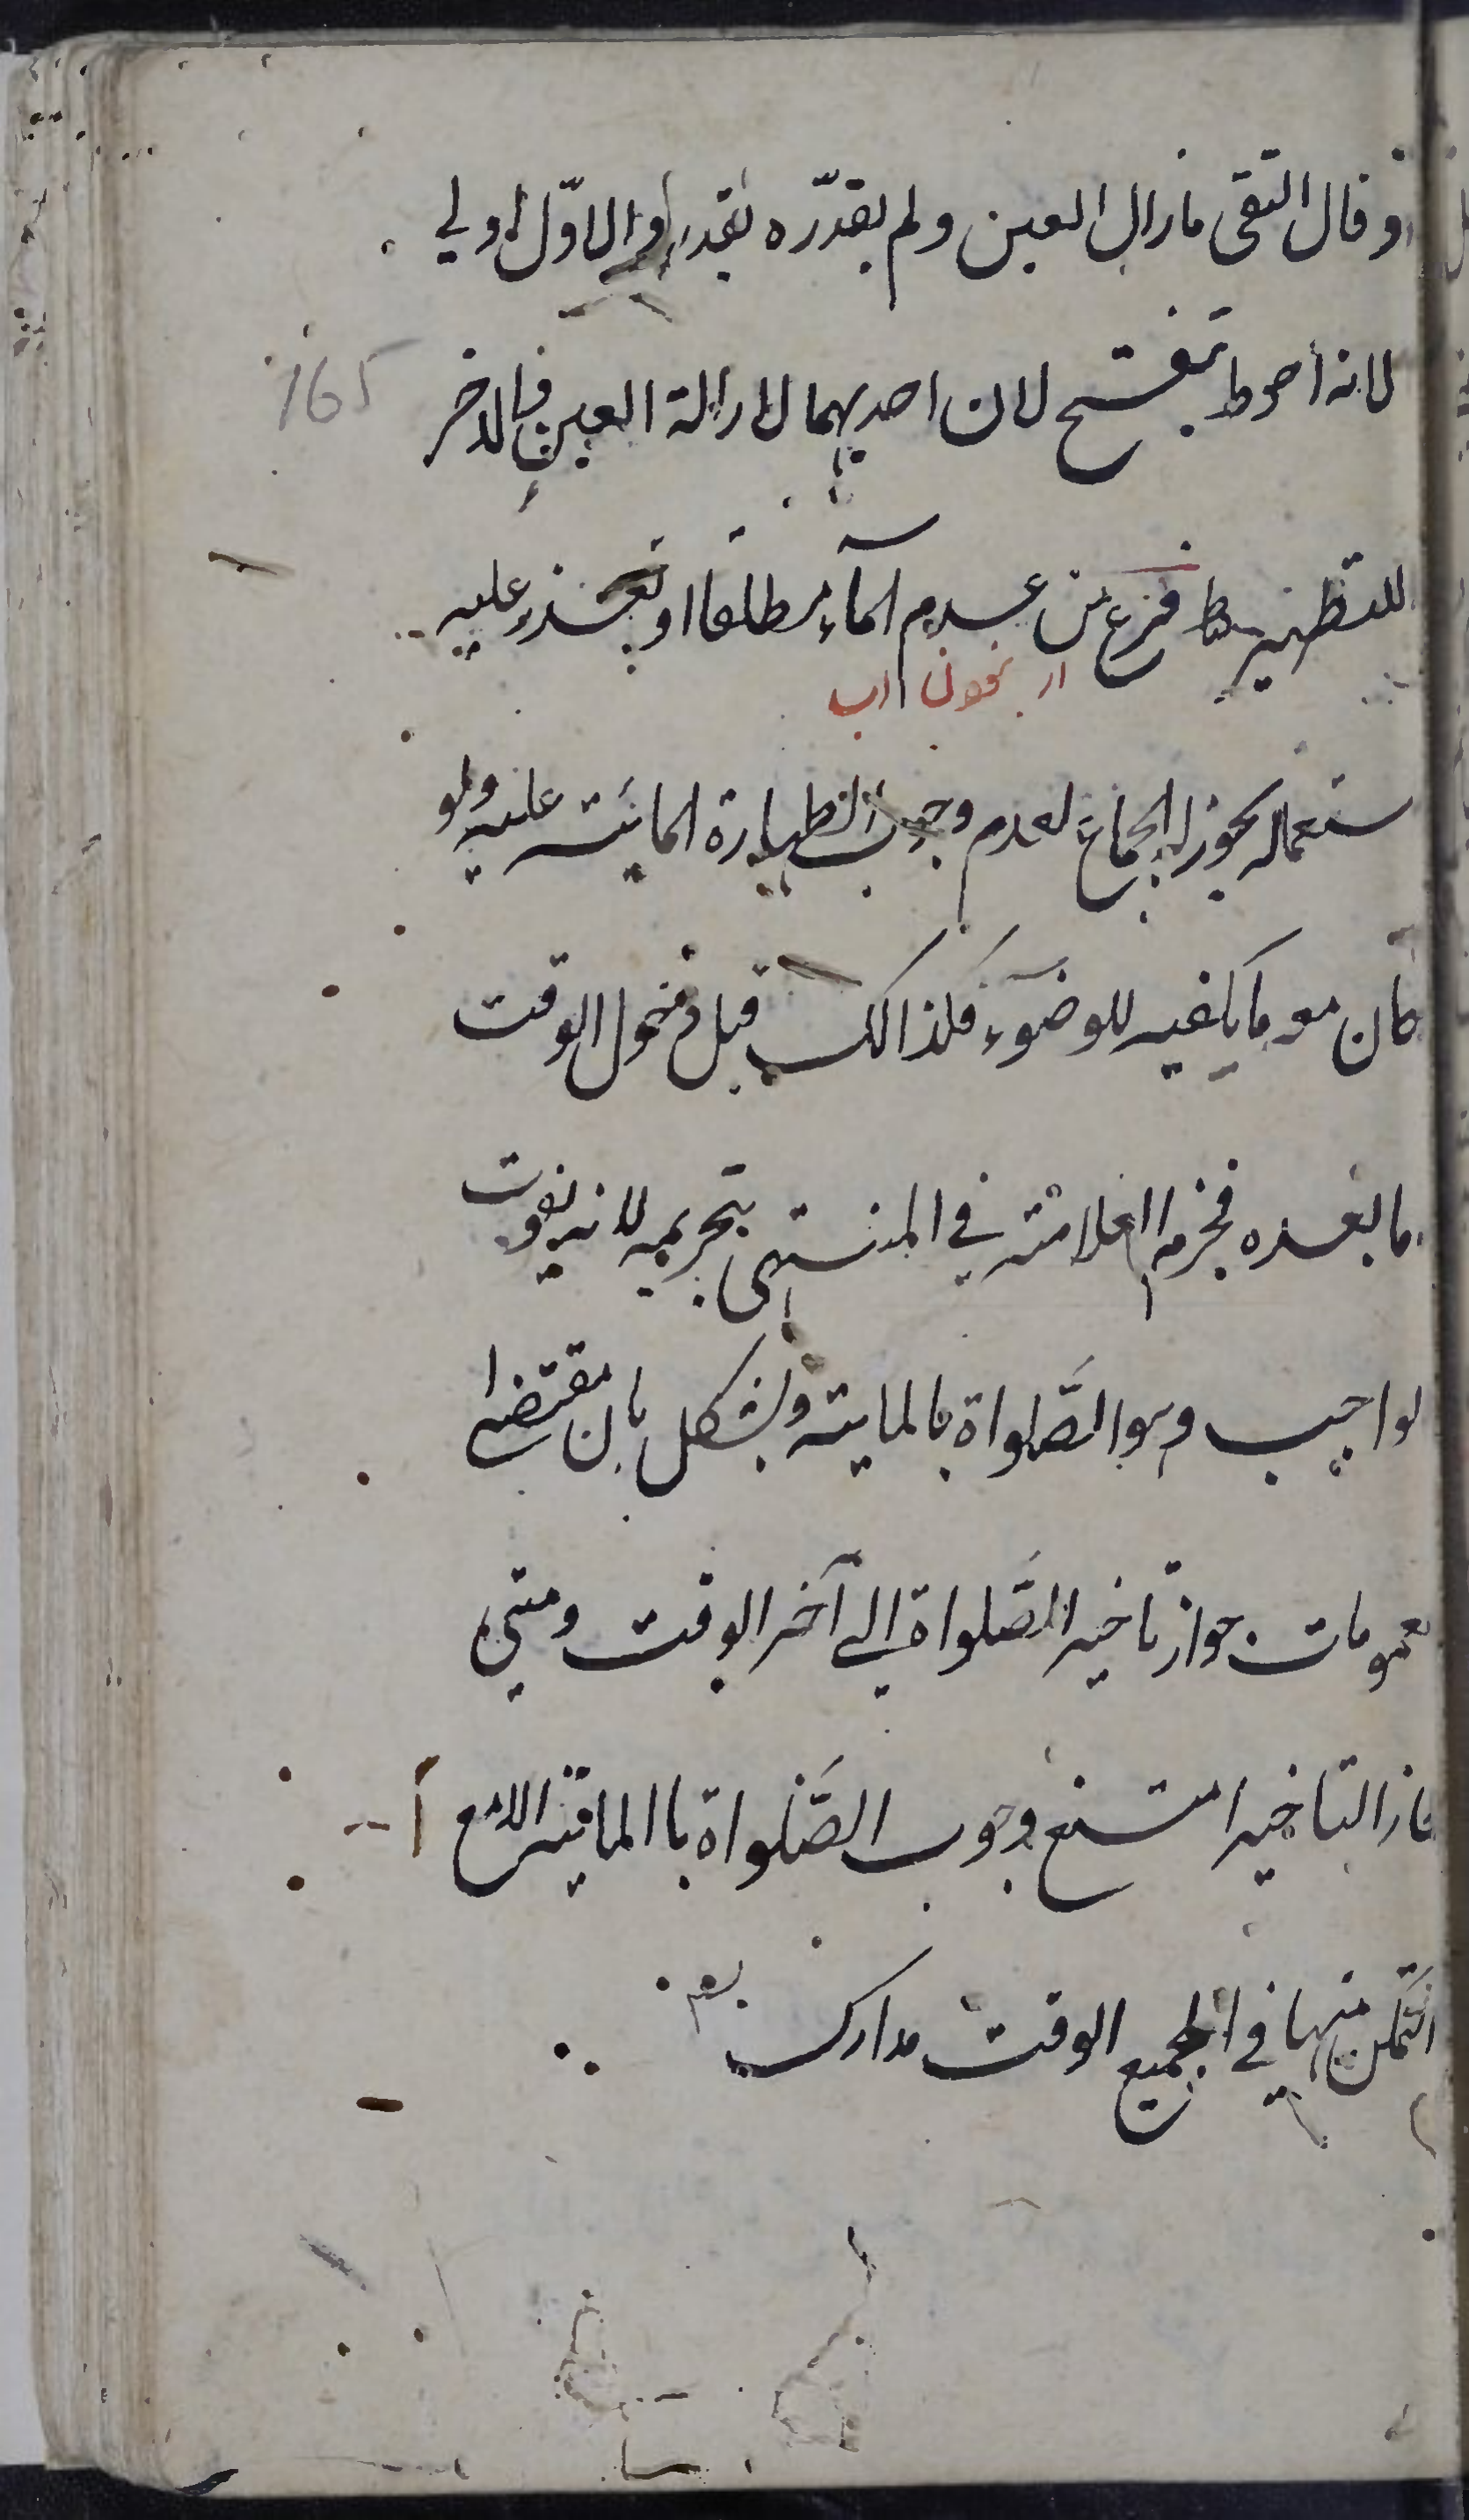 وقال التقى مازال العين ولم يقدّره بقدر والاوّل اولي
لانه احوط تنقيح لان احديهما لازالة العين والاخر
للتطهير فرع من عدم المآء مطلقا او تعذر عليه
از نحون اب
ستعماله يجوز له الجماع لعدم وجوب الطهارة المائيته عليه ولو
كان معه ما يكفيه للوضوء فكذالك قبل دخول الوقت
ما بعده فجزم العلامته في المنتهى بتحريمه لانه يفوت
لواجب وهو الصَّلواة بالمايته ويشكل بان مقتضى
لعمومات جواز تاخير الصَّلواة الي آخر الوقت ومتي
جاز التاخير امتنع وجوب الصَّلواة باالمائيته اللامع
التمكن منها في الجميع الوقت مدارك
165